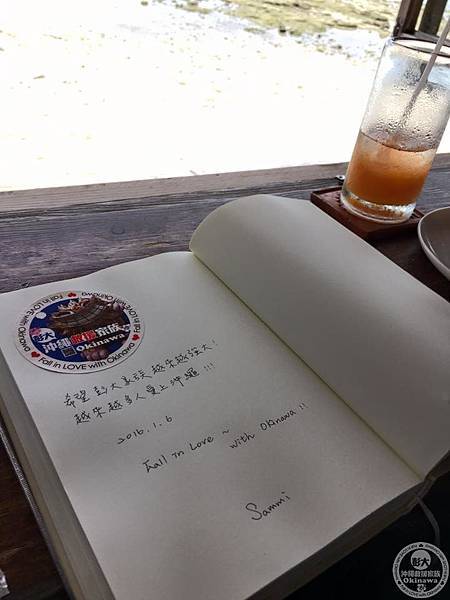 Fall in LOVE with Okinawa
彭大
沖繩救援家族
Okinawa
Fall in LOVE with Okinawa
希望彭大家族越來越強大!
越來越多人愛上沖繩!!!
2016.1.6
Fall In Love~
with Okinawa!!
Sammi
彭大
沖繩救援家族
Okinawa